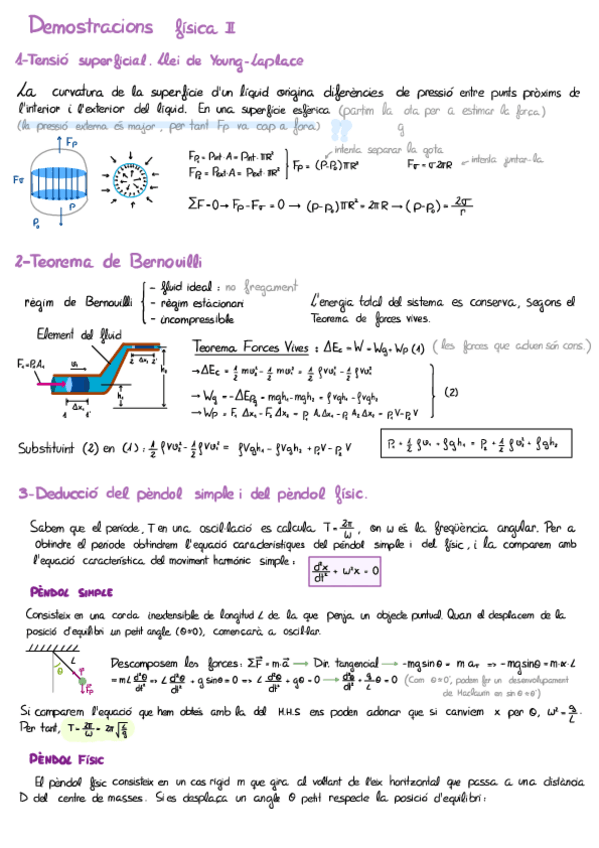 Demostracions física II
1-Tensió superficial. Llei de Young-Laplace
La curvatura de la superfície d'un líquid origina diferències de pressió entre punts pròxims de
l'interior i l'exterior del líquid. En una superfície esfèrica (partim la gota per a estimar la força)
(la pressió externa és major, per tant Fp va cap a fora)
Fp
Fσ
P
P₀
intenta separar la gota
Fp₁ = Pint·A = Pint·πR²
Fp₂ = Pext·A = Pext·πR²
Fp = (P-P₀)πR²
Fσ = σ2πR
intenta juntar-la
ΣF=0 → Fp - Fσ = 0 → (p-p₀)πR² = 2πR → (p-p₀) = 2σ/r
2-Teorema de Bernouilli
règim de Bernouilli
- fluid ideal: no fregament
- règim estacionari
- incompressible
L'energia total del sistema es conserva, segons el
Teorema de forces vives.
Element del fluid
F₁=P₁A₁
Δx₁
Δx₂
h₁
h₂
1 1'
2 2'
Teorema Forces Vives: ΔEc = W = Wg + Wp (1) (les forces que actuen són cons.)
→ ΔEc = 1/2 mv₂² - 1/2 mv₁² = 1/2 ρVv₂² - 1/2 ρVv₁²
→ Wg = -ΔEpg = mgh₁ - mgh₂ = ρVgh₁ - ρVgh₂
→ Wp = F₁ Δx₁ - F₂ Δx₂ = P₁ A₁Δx₁ - P₂ A₂Δx₂ = P₁V - P₂V
(2)
Substituint (2) en (1): 1/2 ρVv₂² - 1/2 ρVv₁² = ρVgh₁ - ρVgh₂ + P₁V - P₂V
P₁ + 1/2 ρv₁ + ρgh₁ = P₂ + 1/2 ρv₂² + ρgh₂
3-Deducció del pèndol simple i del pèndol físic.
Sabem que el període, T en una oscil·lació es calcula T = 2π/ω, on ω és la freqüència angular. Per a
obtindre el període obtindrem l'equació característiques del pèndol simple i del físic, i la comparem amb
l'equació característica del moviment harmònic simple: d²x/dt² + ω²x = 0
PÈNDOL SIMPLE
Consisteix en una corda inextensible de longitud L de la que penja un objecte puntual. Quan el desplacem de la
posició d'equilibri un petit angle (θ≈0), començarà a oscil·lar.
θ
L
Fp
Descomposem les forces: ΣF = m·a → Dir. tangencial → -mg sinθ = m aT => -mg sinθ = m·α·L
= mL d²θ/dt² => L d²θ/dt² + g sinθ = 0 => L d²θ/dt² + gθ = 0 → d²θ/dt² + g/L θ = 0 (Com θ≈0', podem fer un desenvolupament
de Maclaurin en sin θ≈θ')
Si comparem l'equació que hem obtés amb la del M.H.S ens podem adonar que si canviem x per θ, ω² = g/L.
Per tant, T = 2π/ω = 2π√(L/g)
PÈNDOL FÍSIC
El pèndol físic consisteix en un cos rígid m que gira al voltant de l'eix horitzontal que passa a una distància
D del centre de masses. Si es desplaça un angle θ petit respecte la posició d'equilibri: